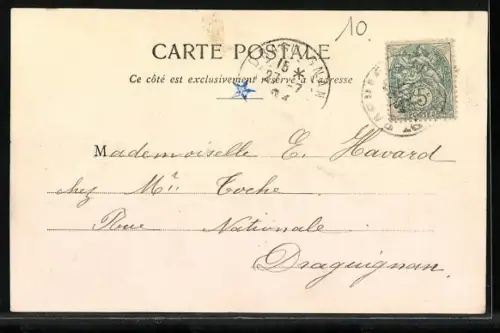 10.
CARTE POSTALE
Ce côté est exclusivement réservé à l'adresse
15 *
27 -7
04
5
Mademoiselle E. Havard
chez Mr. Toche
Rue Nationale
Draguignan.